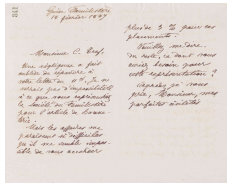 Monsieur C. Graf,
Une négligence a fait
oublier de répondre à
votre lettre du
Je ne
verrais pas d'impossibilité
à ce que nous représentions
la Société du Familistère
pour l'article de
Mais les affaires me
paraissent si difficiles
qu'il me semble impos-
sible de vous accorder
plus de 3 % pour ces
placements.
Veuillez me dire,
du reste, ce dont vous
auriez besoin pour
cette représentation ?
Agréez, je vous
prie, Monsieur, mes
parfaites civilités